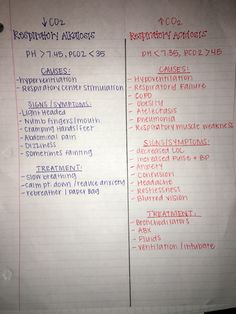 ↓CO2
Respiratory Alkalosis
PH > 7.45, PCO2 < 35
CAUSES:
-hyperventilation
-Respiratory center stimulation
SIGNS/SYMPTOMS:
-Light headed
-Numb fingers/mouth
-Cramping Hands/Feet
-Abdominal pain
-Dizziness
-Sometimes fainting
TREATMENT:
-Slow breathing
-calm pt. down/reduce anxiety
-rebreather/paper bag
↑CO2
Respiratory Acidosis
PH < 7.35, PCO2 > 45
CAUSES:
-Hypoventilation
-Respiratory Failure
-COPD
-Obesity
-Atelectasis
-pneumonia
-Respiratory muscle weakness
SIGNS/SYMPTOMS:
-decreased LOC
-increased Pulse + BP
-Anxiety
-Confusion
-Headache
-Restlessness
-Blurred vision
TREATMENT:
-Bronchodilators
-ABX
-Fluids
-Ventilation/Intubate